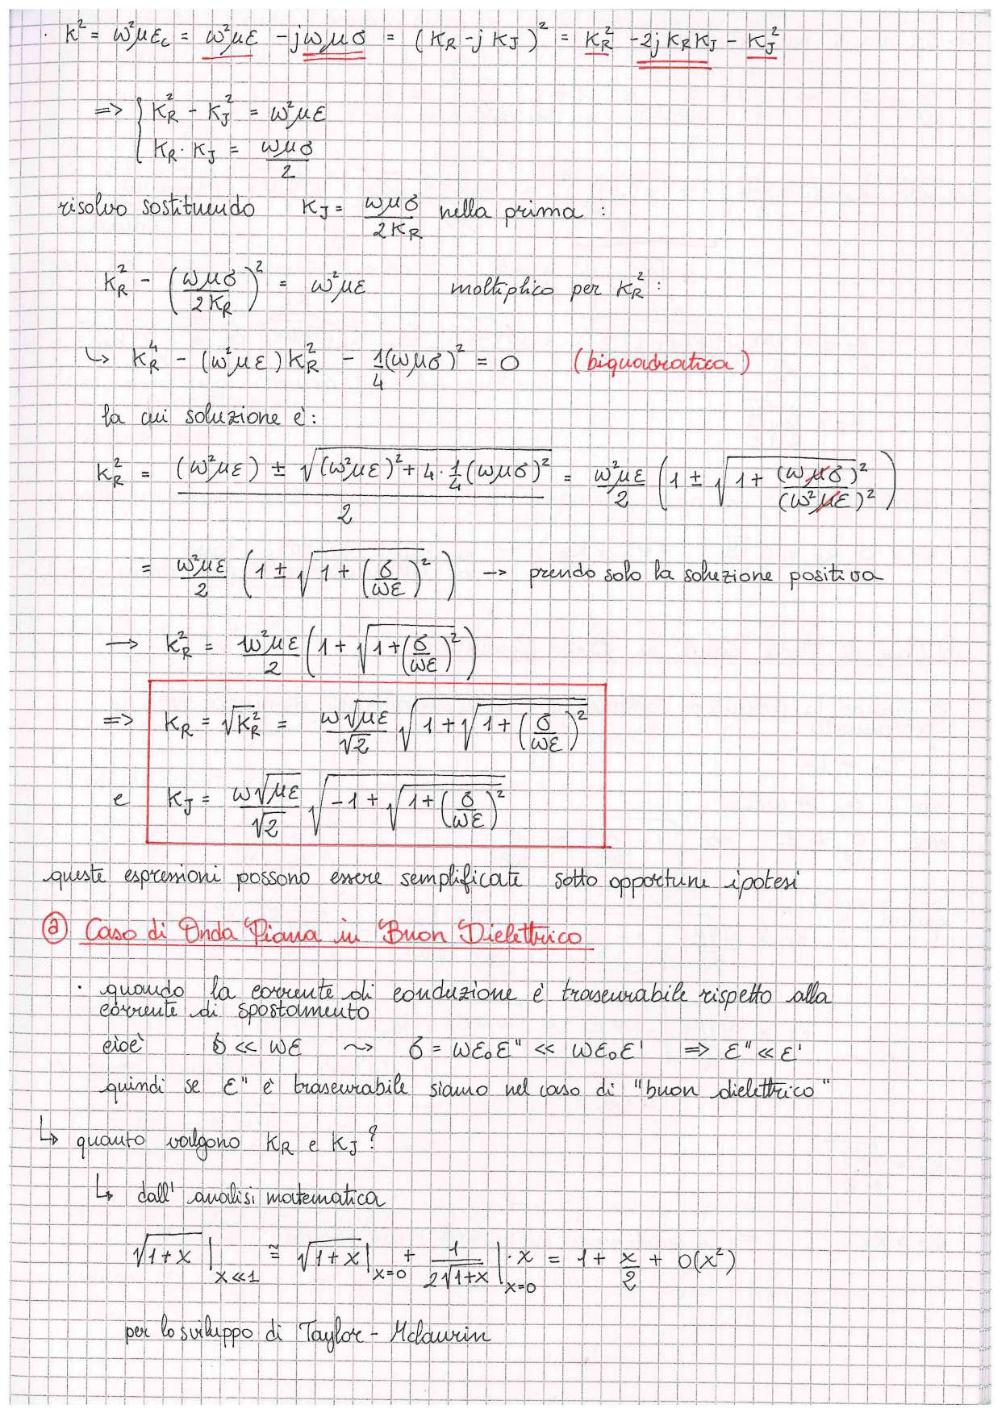 · k² = ω²με_c = ω²με - jωμσ = (k_R - j k_J)² = k_R² - 2j k_R k_J - k_J²
=> { k_R² - k_J² = ω²με
k_R · k_J = ωμσ/2
risolvo sostituendo k_J = ωμσ/2k_R nella prima :
k_R² - (ωμσ/2k_R)² = ω²με moltiplico per k_R² :
↳ k_R⁴ - (ω²με) k_R² - 1/4 (ωμσ)² = 0 (biquadratica)
la cui soluzione è :
k_R² = ((ω²με) ± √((ω²με)² + 4 · 1/4 (ωμσ)²))/2 = ω²με/2 (1 ± √(1 + (ωμσ)²/(ω²με)²))
= ω²με/2 (1 ± √(1 + (σ/ωε)²)) → prendo solo la soluzione positiva
→ k_R² = ω²με/2 (1 + √(1 + (σ/ωε)²))
=> k_R = √k_R² = ω√με/√2 √(1 + √(1 + (σ/ωε)²))
e k_J = ω√με/√2 √(-1 + √(1 + (σ/ωε)²))
queste espressioni possono essere semplificate sotto opportune ipotesi
ⓐ Caso di Onda Piana in Buon Dielettrico
· quando la corrente di conduzione è trascurabile rispetto alla
corrente di spostamento
cioè σ << ωε ⤳ σ = ωε₀ε" << ωε₀ε' => ε" << ε'
quindi se ε" è trascurabile siamo nel caso di "buon dielettrico"
↳ quanto valgono k_R e k_J ?
↳ dall' analisi matematica
√(1+x) |_(x<<1) ≅ √(1+x) |_(x=0) + 1/(2√(1+x)) |_(x=0) · x = 1 + x/2 + O(x²)
per lo sviluppo di Taylor - Mclaurin